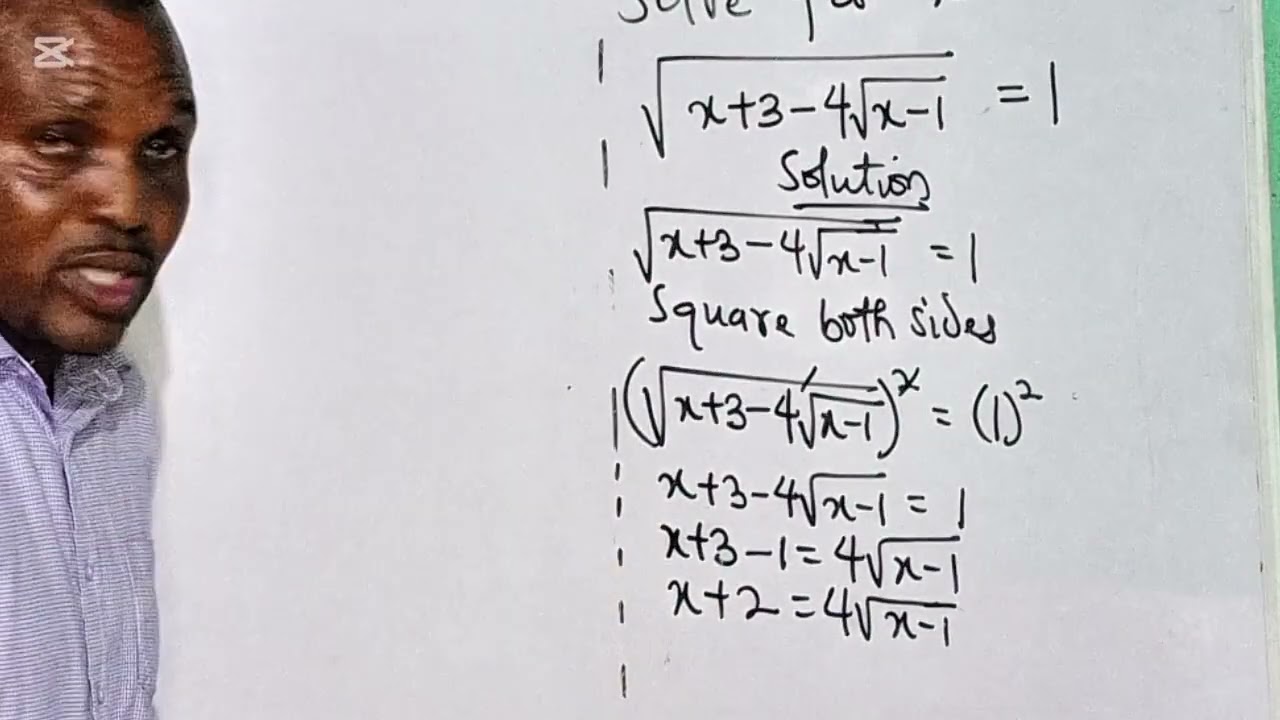 Solve for
√(x+3-4√(x-1)) = 1
Solution
√(x+3-4√(x-1)) = 1
Square both sides
(√(x+3-4√(x-1)))² = (1)²
x+3-4√(x-1) = 1
x+3-1=4√(x-1)
x+2=4√(x-1)